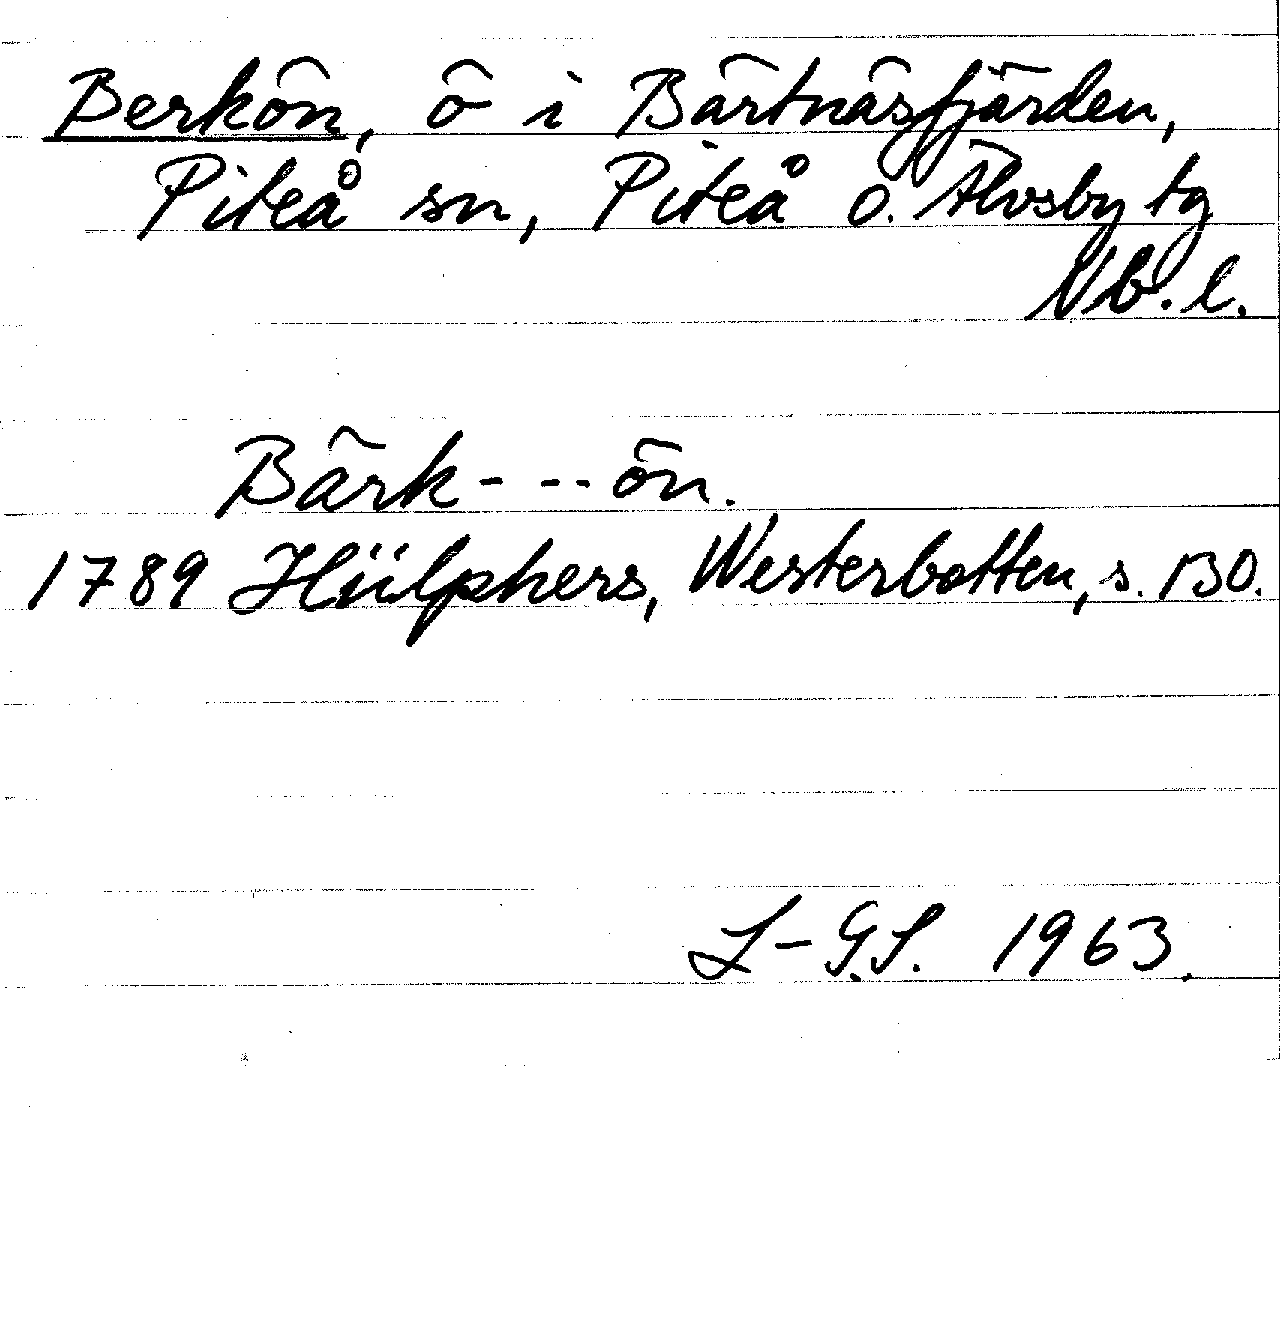 Berkön, ö i Bärtnäsfjärden,
Piteå sn, Piteå o. Älvsby tg
Nb. l.
Bärk - - - ön.
1789 Hülphers, Westerbotten, s. 130.
L-G.S. 1963.